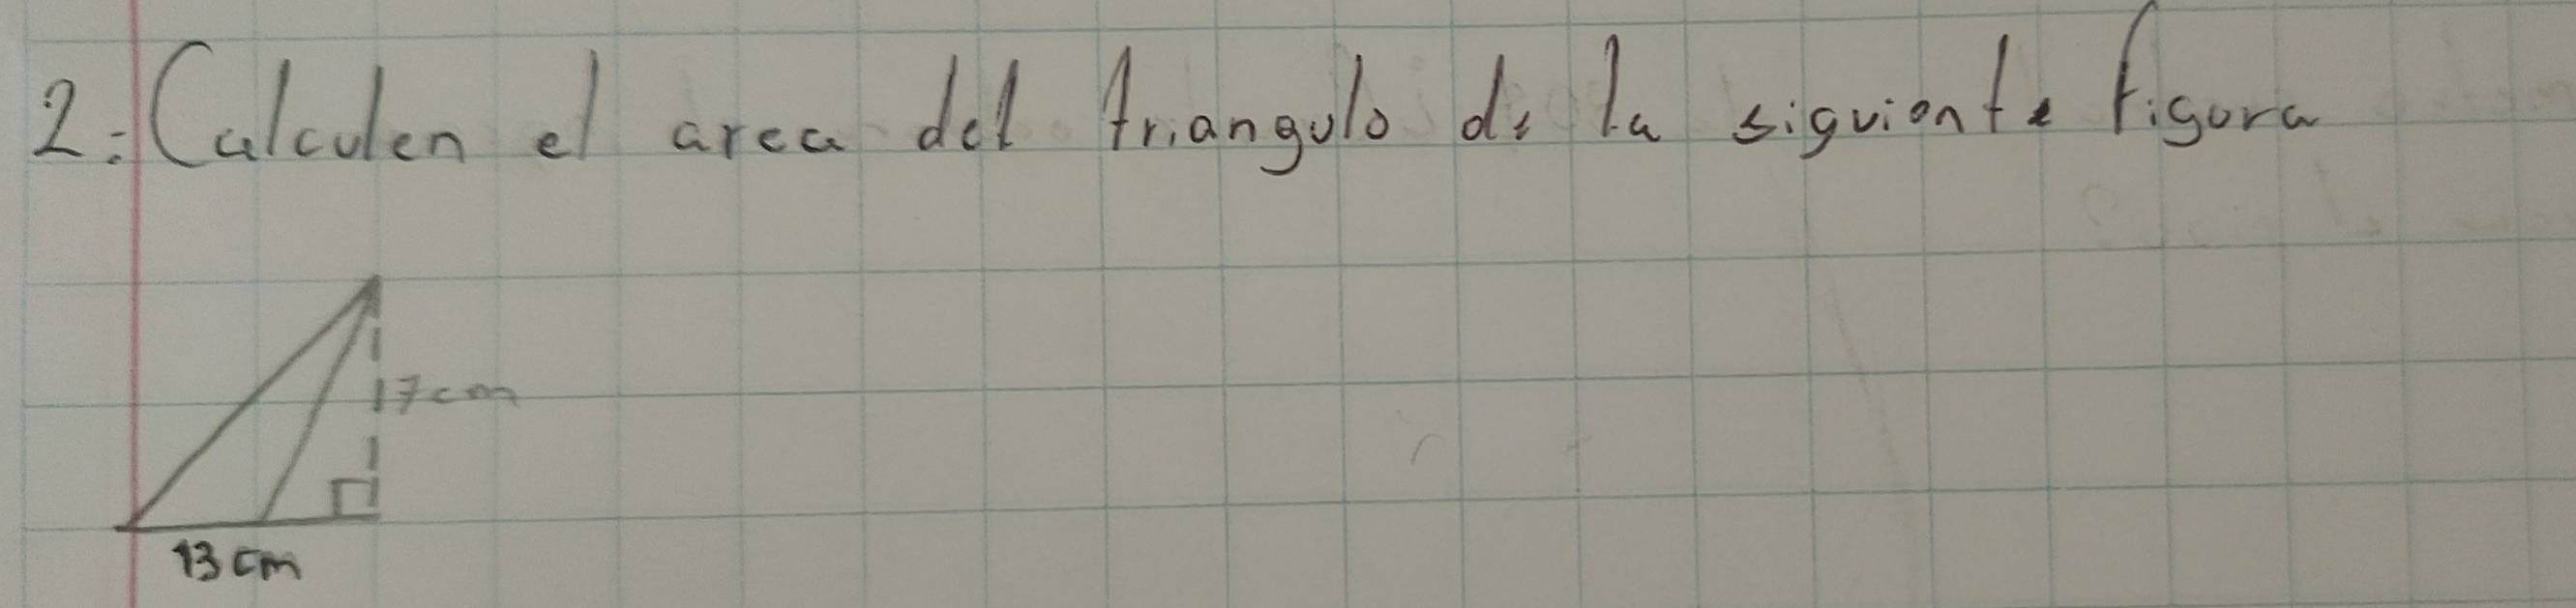 2: Calculen el area del triangulo de la siguiente figura
17cm
13 cm